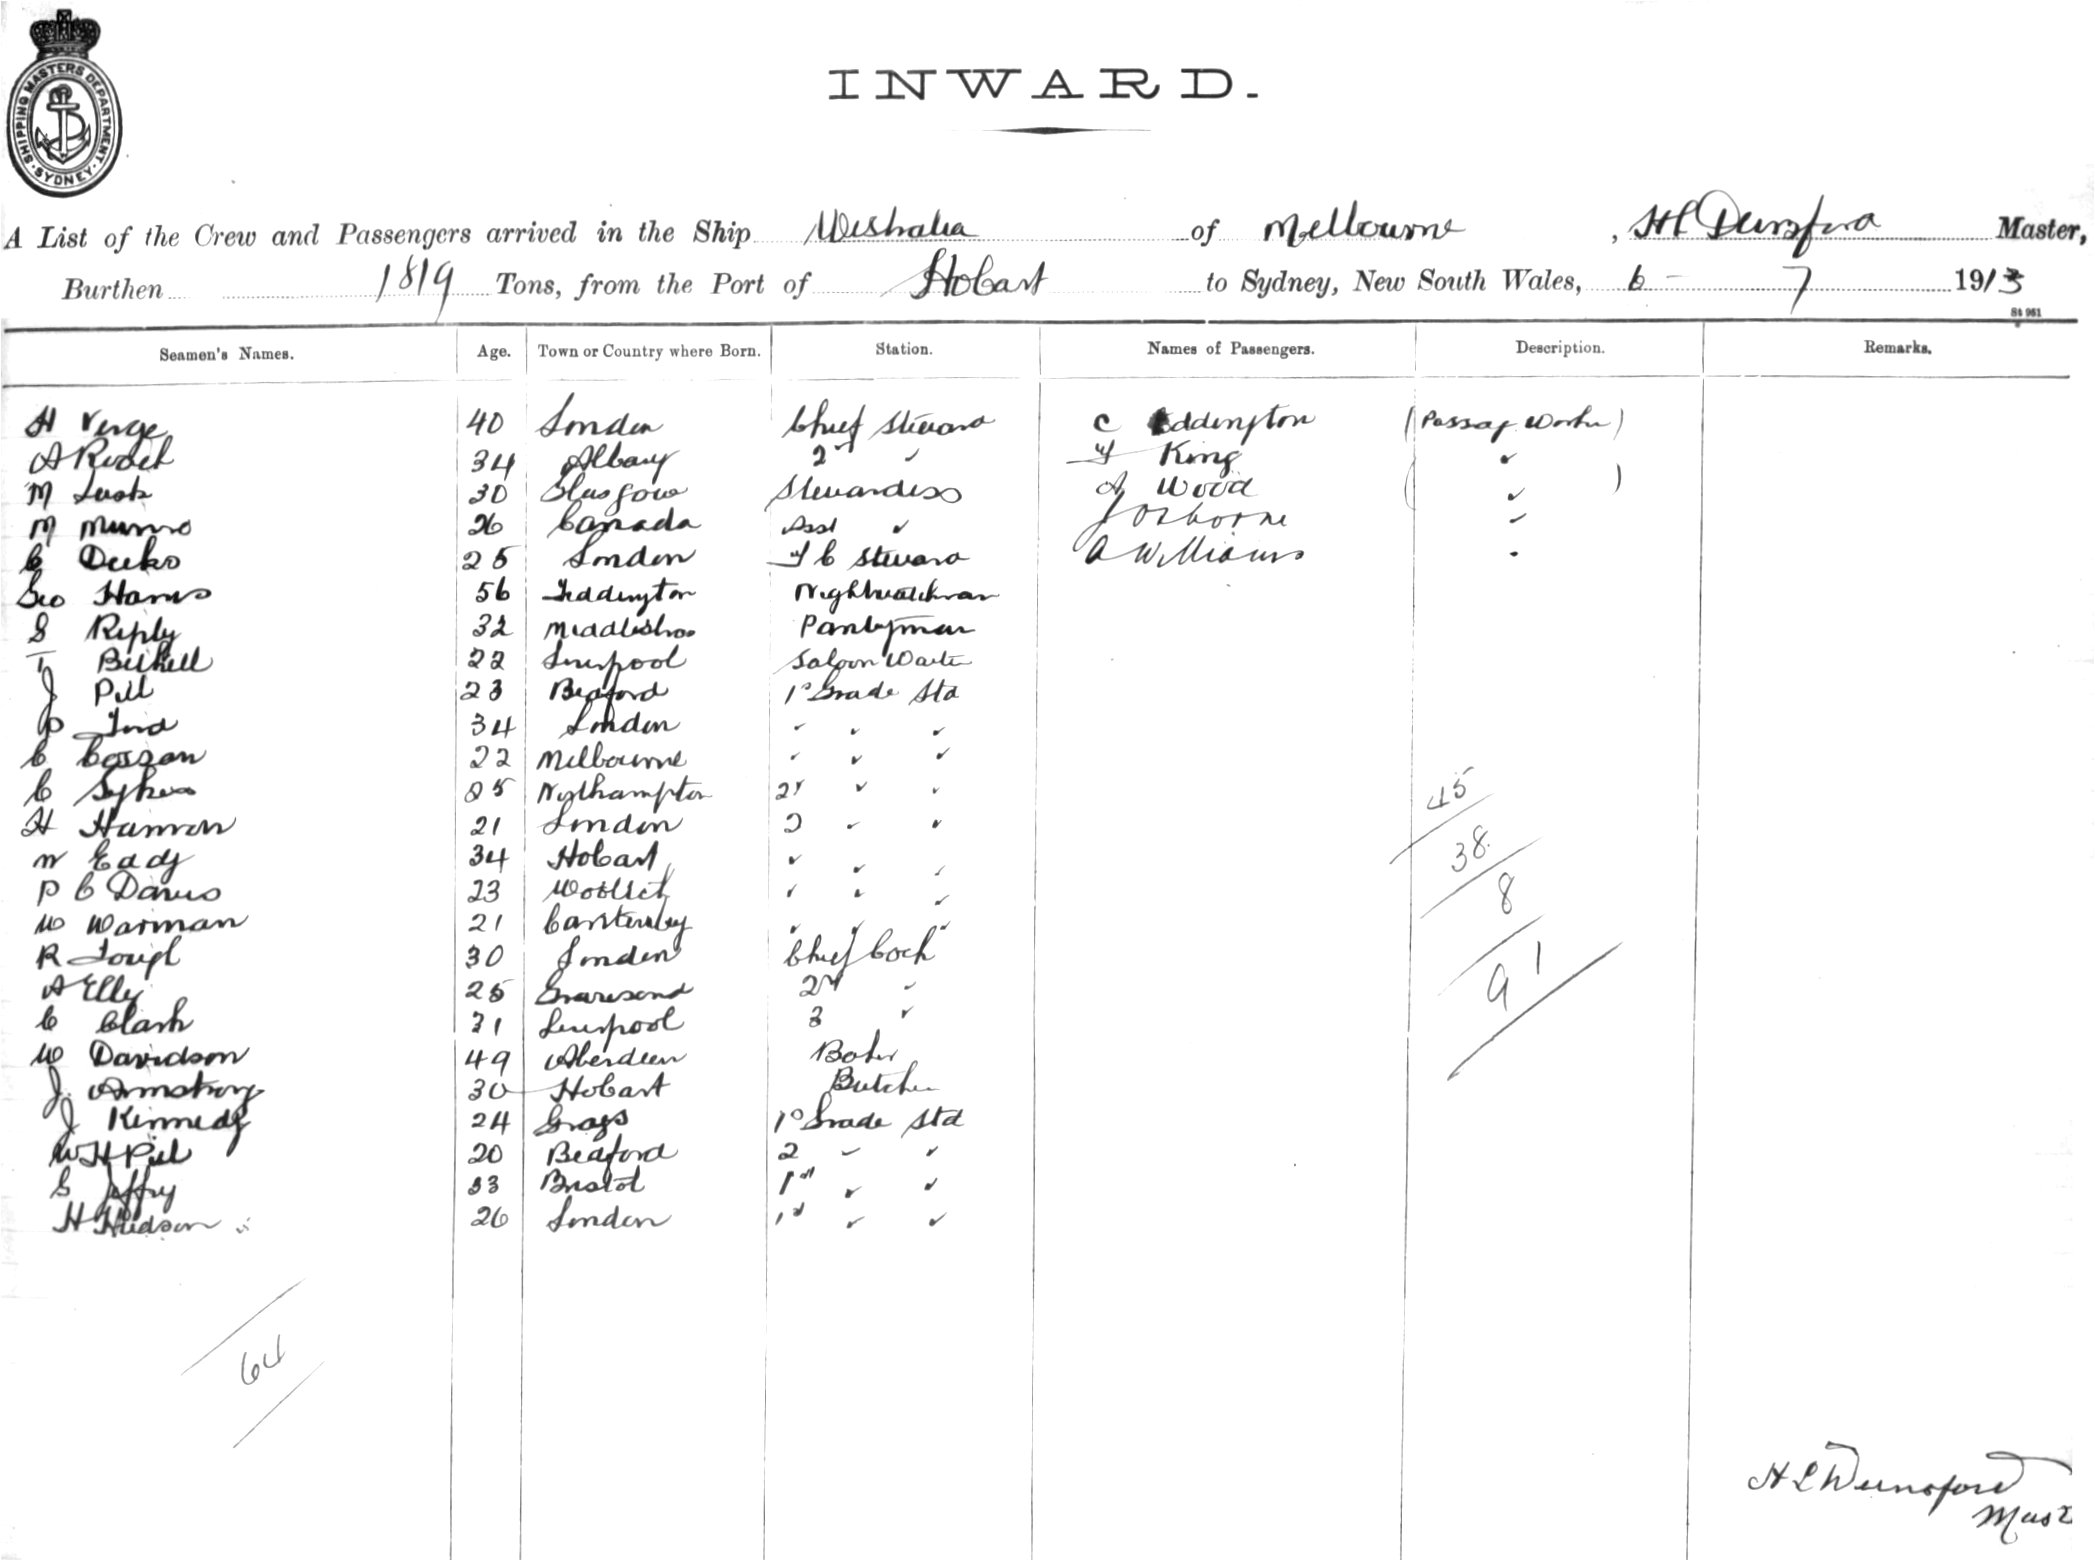 SHIPPING MASTERS DEPARTMENT. SYDNEY.
INWARD.
A List of the Crew and Passengers arrived in the Ship Westralia of Melbourne, H L Dunsford Master,
Burthen 1819 Tons, from the Port of Hobart to Sydney, New South Wales, 6 - 7 1913
St 961
Seamen's Names. Age. Town or Country where Born. Station. Names of Passengers. Description. Remarks.
H Verge 40 London Chief Steward C Eddington (Passag Worker)
A 34 Albany 2nd ✓ F King ✓
M Lusk 30 Glasgow Stewardess A Wood ( ✓ )
M Munro 26 Canada Asst ✓ J Osborne ✓
C Deeks 25 London F C Steward A Williams
Geo Harris 56 Teddington Nightwatchman
S Reply 32 Middlesbro Pantryman
T 22 Liverpool Saloon Waiter
J Pill 23 Beaford 1st Grade Std
P Ford 34 London
C Cossan 22 Melbourne
C Sykes 25 Northampton 2nd
H Hannon 21 London 2
W Eady 34 Hobart
P C Davis 23
W Warman 21 Canterbury
R Tough 30 London Chief Cook
A Elley 25 Gravesend 2nd
C Clark 31 Liverpool 3
W Davidson 49 Aberdeen Baker
J. Armstrong 30 Hobart Butcher
J Kennedy 24 Grays 1st Grade Std
W H Pill 20 Beaford 2
S Jeffry 33 Bristol 1st
H Hudson 26 London 1st
45
38
8
91
64
H L Dunsford
Mast